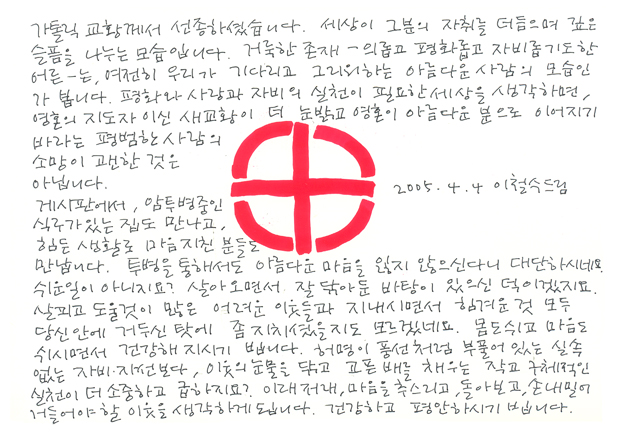 가톨릭 교황께서 선종하셨습니다. 세상이 그분의 자취를 더듬으며 깊은
슬픔을 나누는 모습입니다. 거룩한 존재 - 의롭고 평화롭고 자비롭기도한
어른-는, 여전히 우리가 기다리고 그리워하는 아름다운 사람의 모습인
가 봅니다. 평화와 사랑과 자비의 실천이 필요한 세상을 생각하면,
영혼의 지도자이신 새교황이 더 눈밝고 영혼이 아름다운 분으로 이어지기
바라는 평범한 사람의
소망이 괜한 것은
아닙니다.
2005. 4. 4 이철수드림
게시판에서, 암투병중인
식구가 있는 집도 만나고,
힘든 생활로 마음지친 분들도
만납니다. 투병을 통해서도 아름다운 마음을 잃지 않으신다니 대단하시네요.
쉬운일이 아니지요? 살아오면서 잘 닦아둔 바탕이 있으신 덕이겠지요.
살피고 도울것이 많은 어려운 이웃들과 지내시면서 힘겨운것 모두
당신안에 거두신 탓에 좀 지치셨을지도 모르겠네요. 몸도쉬고 마음도
쉬시면서 건강해 지시기 빕니다. 허명이 풍선처럼 부풀어 있는 실속
없는 자비·자선보다, 이웃의 눈물을 닦고 고픈 배를 채우는 작고 구체적인
실천이 더 소중하고 급하지요? 이래저래, 마음을 추스리고, 돌아보고, 손내밀어
거들어야 할 이웃을 생각하게 됩니다. 건강하고 평안하시기 빕니다.